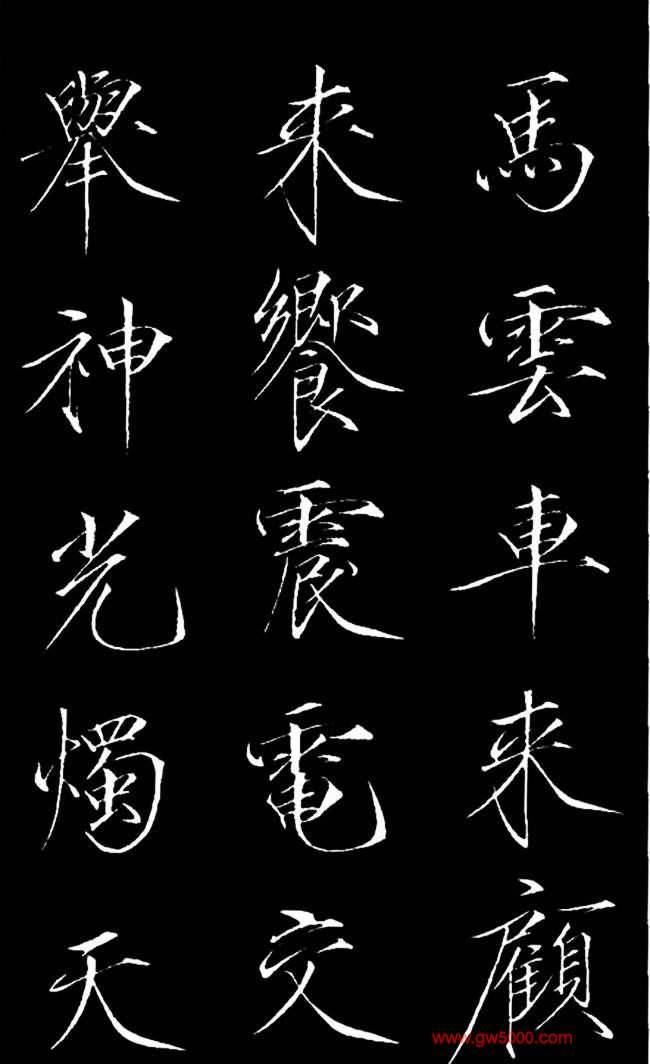 馬雲車来顧
来饗震電交
舉神光燭天
www.gw5000.com